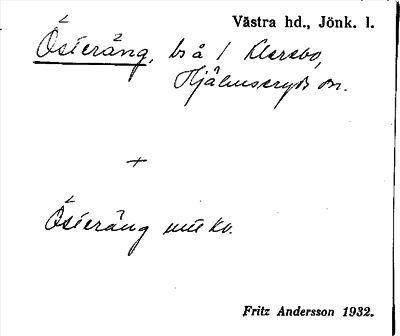 Västra hd., Jönk. l.
Österäng, bs å / Klarebo,
Hjälmseryds sn.
+
Österäng utt kv.
Fritz Andersson 1932.